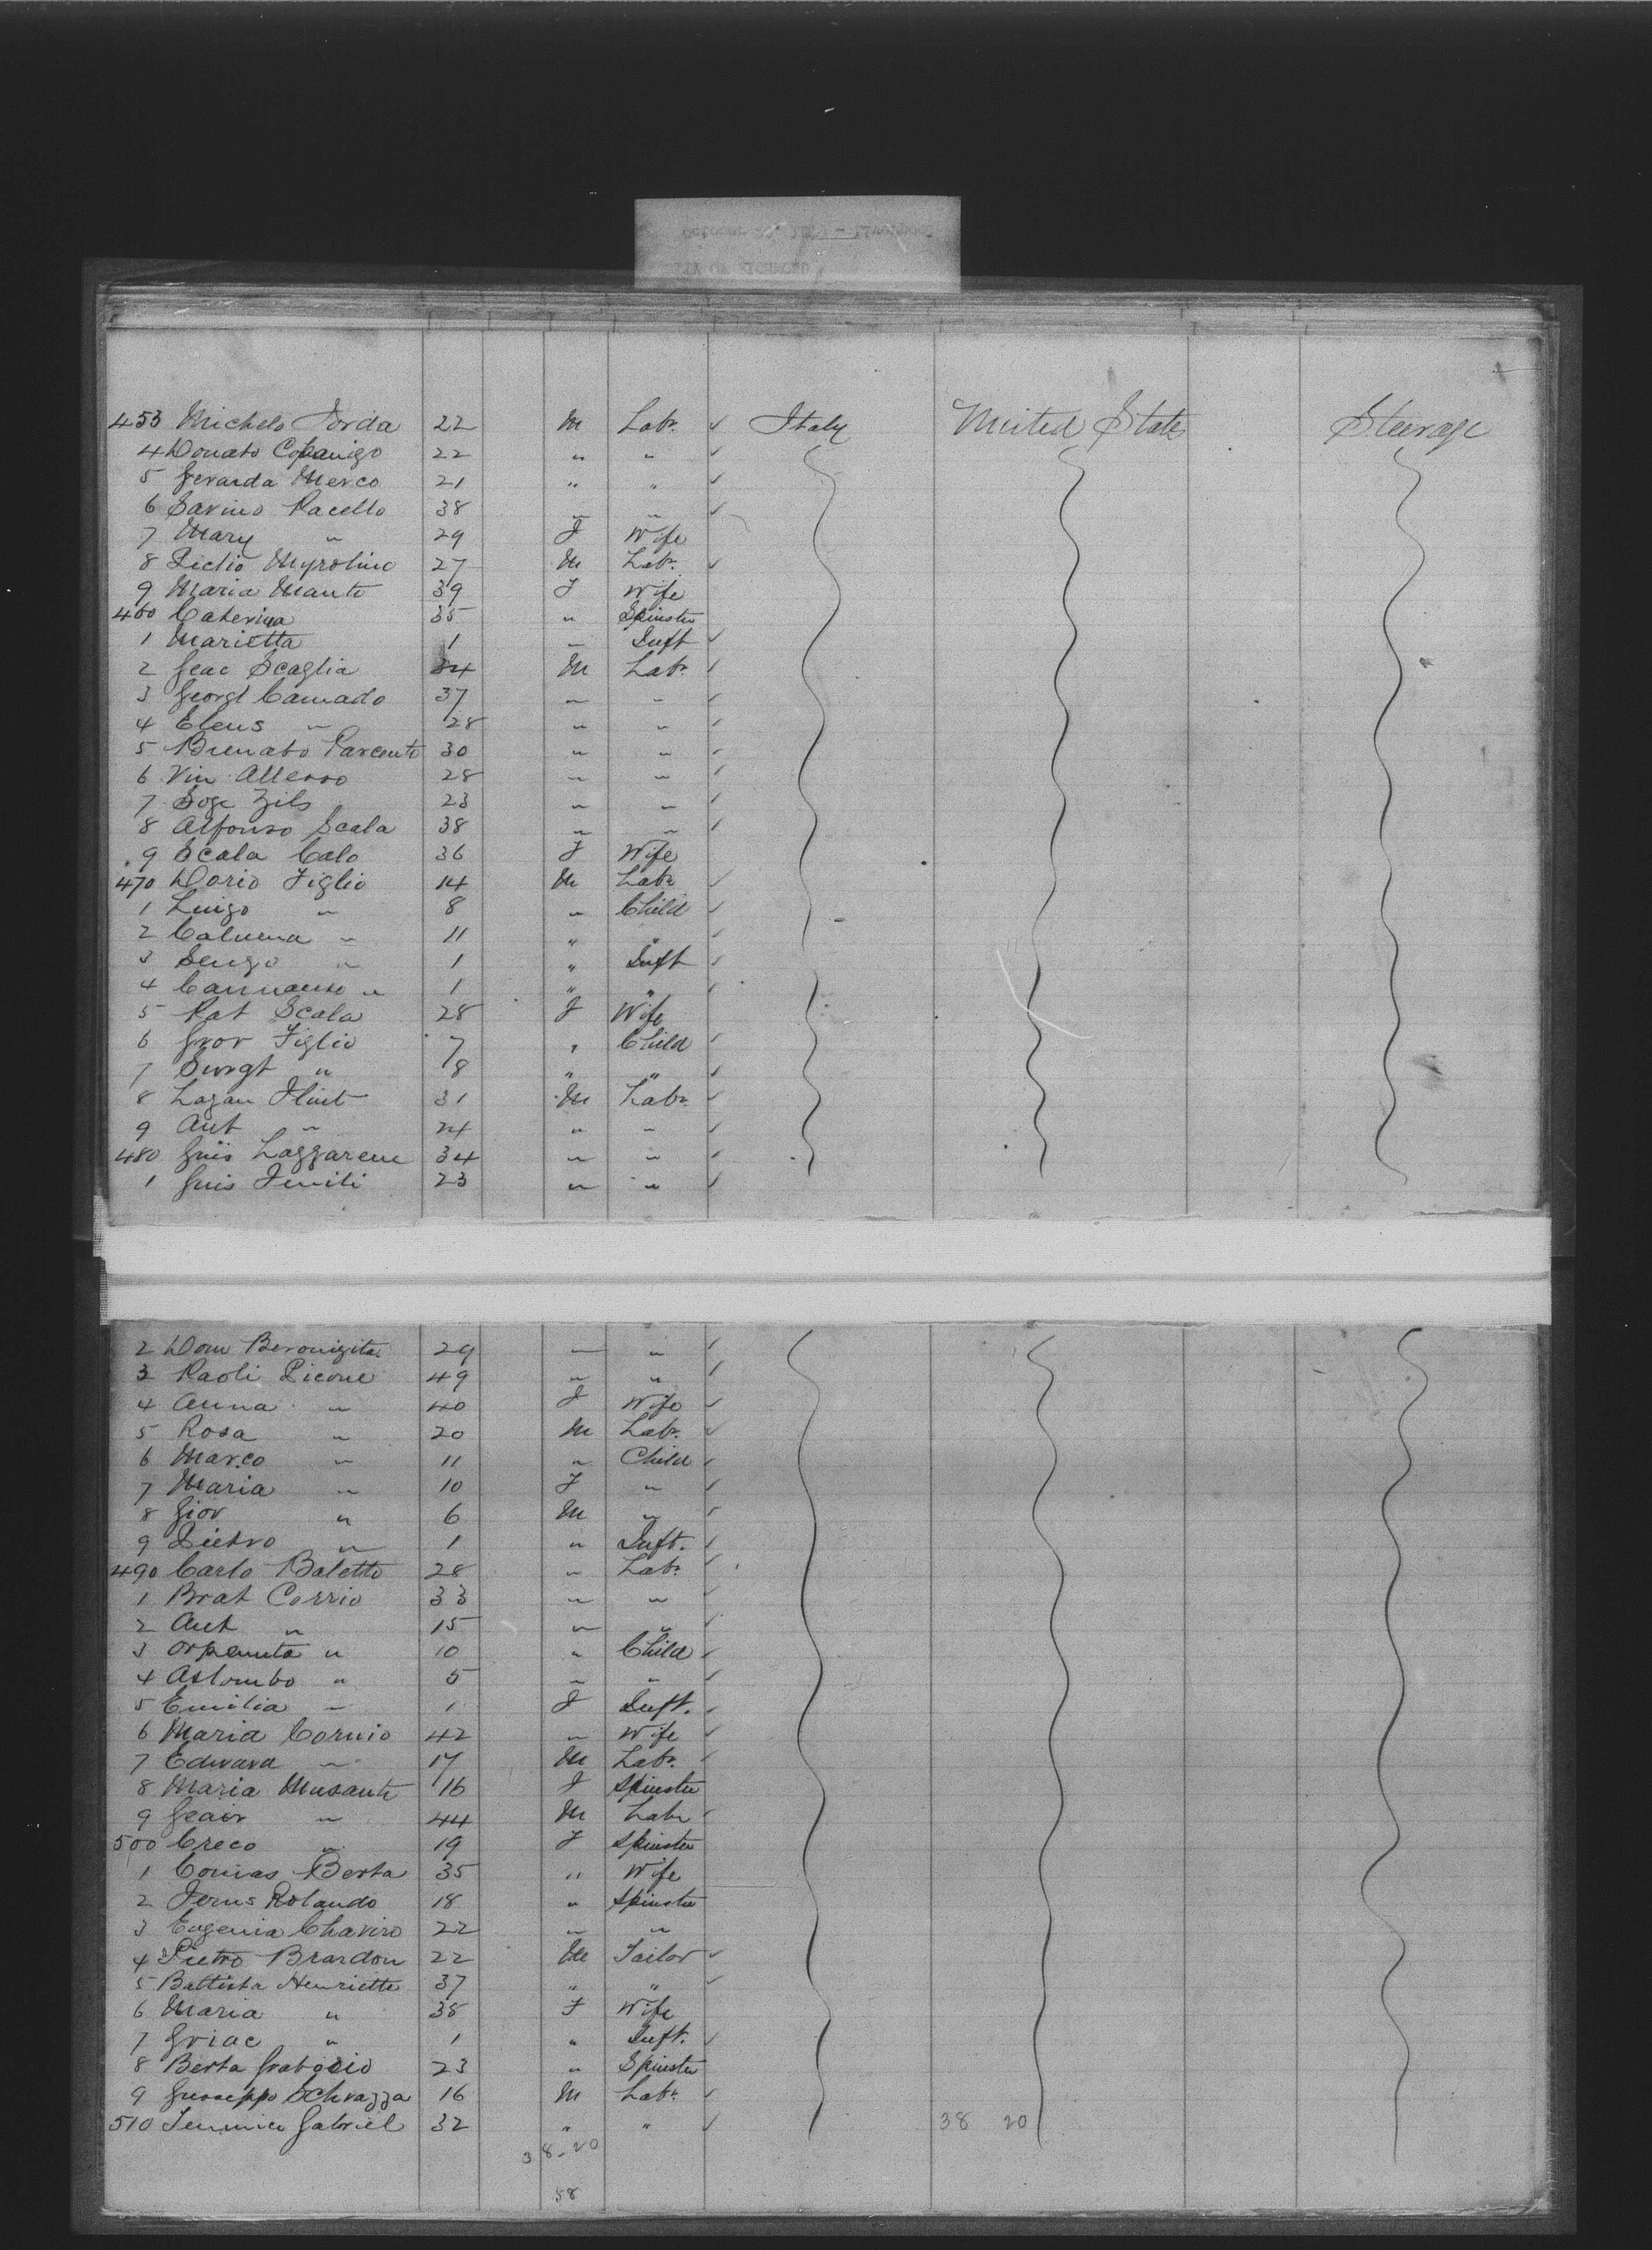 453 Michele Forda 22 M Labr. ✓ Italy United State Steerage
4 Donato Copanigo 22 " " ✓
5 Gerarda Merco 21 " " ✓
6 Savino Racello 38 " " ✓
7 Mary " 29 F Wife
8 Myrolino 27 M Labr. ✓
9 Maria Mante 39 F Wife
460 Caterina 35 " Spinster
1 Marietta 1 " Inft ✓
2 Geac Scaglia M Labr. ✓
3 Georgi Camado 37 " " ✓
4 Elens " 28 " " ✓
5 Parcenti 30 " " ✓
6 Vin Allesso 28 " " ✓
7 Zils 23 " " ✓
8 Alfonso Scala 38 " " ✓
9 Scala Calo 36 F Wife
470 Dorio Figlio 14 M Labr ✓
1 Luigo " 8 " Child ✓
2 " 11 " " ✓
3 " 1 " Inft ✓
4 " 1 " " ✓
5 Rat Scala 28 F Wife
6 Figlio 7 " Child ✓
7 " 8 " " ✓
8 Lazan Flint 31 M Labr. ✓
9 Ant " 24 " " ✓
480 Guis Lazzarene 34 " " ✓
1 Guis 23 " " ✓
2 Dom Beronizita 29 " " ✓
3 Paoli Picone 49 " " ✓
4 Anna " 40 F Wife ✓
5 Rosa " 20 M Labr. ✓
6 Marco " 11 " Child ✓
7 Maria " 10 F " ✓
8 Giov " 6 M " ✓
9 Pietro " 1 " Inft. ✓
490 Carlo Baletto 28 " Labr. ✓
1 Brat Corrio 33 " " ✓
2 Ant " 15 " " ✓
3 Orpenuta " 10 " Child ✓
4 Aslombo " 5 " " ✓
5 Emilia " 1 F Inft. ✓
6 Maria Cornio 42 " Wife ✓
7 Edward " 17 M Labr. ✓
8 Maria Musante 16 F Spinster
9 Geair " 44 M Labr ✓
500 Creco " 19 F Spinster
1 Comas Berta 35 " Wife
2 Rolando 18 " Spinster
3 Eugenia Chaviro 22 " "
4 Pietro Brardon 22 M Tailor ✓
5 Battista Henriette 37 " " ✓
6 Maria " 38 F Wife
7 Griac " 1 " Inft. ✓
8 Berta 23 " Spinster
9 Giuseppo Schrazza 16 M Labr. ✓
510 Gabriel 32 " " ✓ 38 20
38-20
58